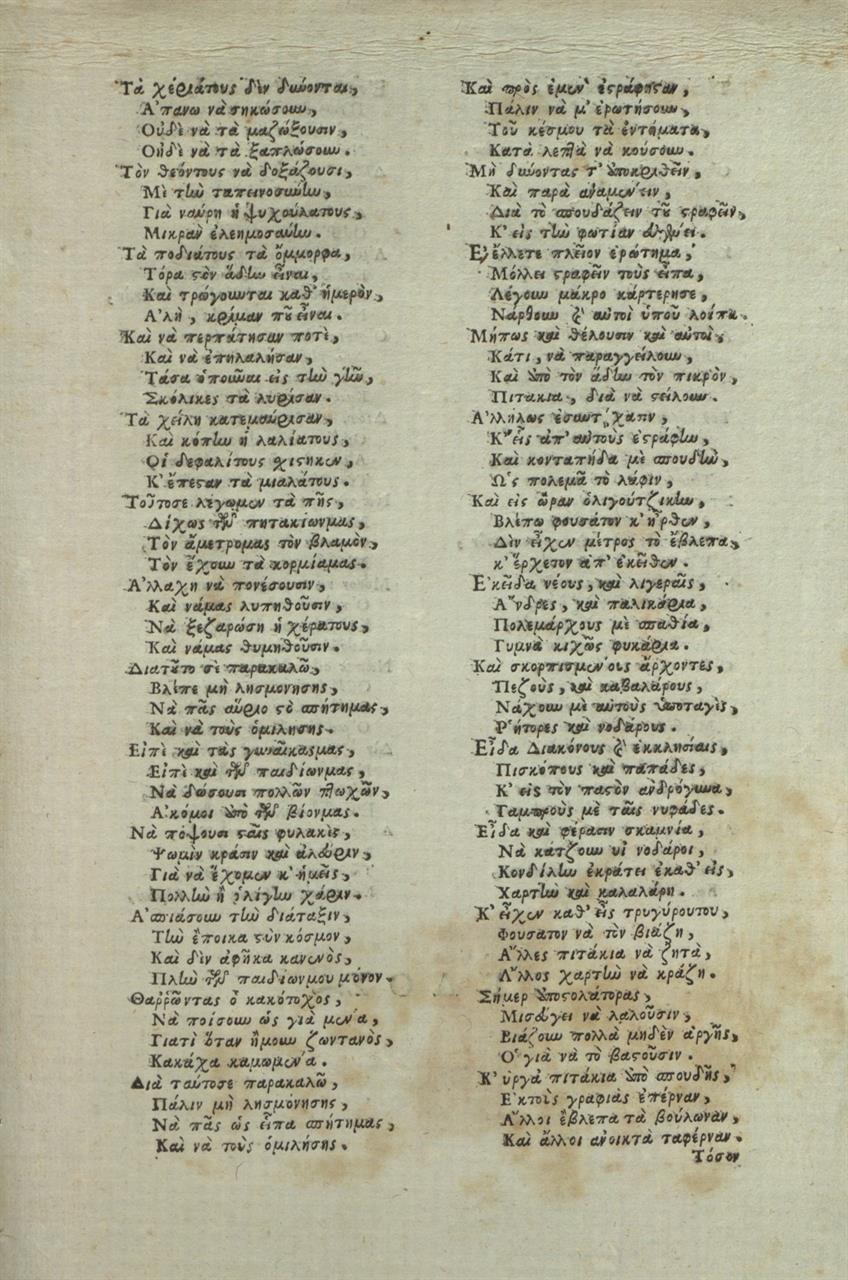 Τὰ χέριάτους δὲν δύνονται,
Ἀ'πανω νὰ σηκώσουν,
Οὐδὲ νὰ τὰ μαζώξουσιν,
Οὐδὲ νὰ τὰ ξαπλώσουν.
Τὸν θεόντους νὰ δοξάζουσι,
Μὲ τὴν ταπεινοσύνην,
Γιὰ ναύρη ἡ ψυχούλατους,
Μικρὰν ἐλεημοσύνην.
Τὰ ποδιάτους τὰ ὄμμορφα,
Τόρα στὸν ἅδην εἶναι,
Καὶ τρώγουνται καθ' ἡμερὸν,
Ἀ'λὴ, κρίμαν ποῦ εἶναι.
Καὶ νὰ περπάτησαν ποτὲ,
Καὶ νὰ ἐπηλαλήσαν,
Τάσα ὁποιῶναι εἰς τὴν γῆν,
Σκόλικες τὰ λυρίσαν.
Τὰ χείλη κατεμαύρισαν,
Καὶ κόπην ἡ λαλίατους,
Οἱ δεφαλίτους σχιστηκαν,
Κ' ἔπεσαν τὰ μιαλάτους.
Τοῦτοσε λέγωμεν τὰ πῆς,
Δίχως τῶν πητακίωνμας,
Τὸν ἄμετρομας τὸν βλαμὸν,
Τὸν ἔχουν τὰ κορμίαμας.
Ἀ'λλαχη νὰ πονέσουσιν,
Καὶ νάμας λυπηθοῦσιν,
Νὰ ξεζαρώση ἡ χέρατους,
Καὶ νάμας θυμηθοῦσιν.
Διατοῦτο σὲ παρακαλῶ,
Βλέπε μὴ λησμονησης,
Νὰ πᾶς αὔριο στὸ σπήτημας,
Καὶ νὰ τοὺς ὁμιλησης.
Εἰπὲ καὶ τὰς γυναίκασμας,
Εἰπὲ καὶ τῶν παιδίωνμας,
Νὰ δώσουσι πολλῶν πτωχῶν,
Ἀ'κόμι ὑπὸ τῶν βίονμας.
Νὰ πόψουσι σταῖς φυλακὲς,
Ψωμὶν κράσιν καὶ ἀλεύριν,
Γιὰ νὰ ἔχομεν κ' ἡμεῖς,
Πολλὴν ἢ ὀλίγην χάριν.
Ἀ'σπιάσουν τὴν διάταξιν,
Τὴν ἔποικα στὺν κόσμον,
Καὶ δὲν ἀφῆκα κανενὸς,
Πλὴν τῶν παιδίωνμου μόνον.
Θαῤῥῶντας ὁ κακότοχος,
Νὰ ποίσουν ὡς γιὰ μένα,
Γιατὶ ὅταν ἤμουν ζωντανὸς,
Κακάχα καμωμένα.
Διὰ ταύτοσε παρακαλῶ,
Πάλιν μὴ λησμόνησης,
Νὰ πᾶς ὡς εἶπα σπήτημας,
Καὶ νὰ τοὺς ὁμιλήσης.
Καὶ πρὸς ἐμὲν' ἐστράφησαν,
Πάλιν νὰ μ' ἐρωτήσουν,
Τοῦ κέσμου τὰ ἐντήματα,
Κατὰ λεπτὰ νὰ κούσουν.
Μὴ δύνοντας τ' ὑποκριθεῖν,
Καὶ παρὰ ἀναμένειν,
Διὰ τὸ σπουδάζειν τοῦ στραφεῖν,
Κ' εἰς τὴν φωτίαν
Ε'έλλετε πλεῖον ἐρώτημα,
Μόλλει στραφεῖν τοὺς εἶπα,
Λέγουν μάκρο κάρτερησε,
Νάρθουν καὶ αὐτοὶ ὑποῦ λοίπα.
Μήπως καὶ θέλουσιν καὶ αὐτοὶ,
Κάτι, νὰ παραγγείλουν,
Καὶ ὑπὸ τὸν ἅδην τὸν πικρὸν,
Πιτάκια, διὰ νὰ στείλουν.
Ἀ'λλήλως
Κ' εἷς ἀπ' αὐτοὺς ἐγράφην,
Καὶ κονταπήδα μὲ σπουδὴν,
Ὡ'ς πολεμᾶ τὸ λάφιν,
Καὶ εἰς ὥραν ὀλιγούτζικην,
Βλέπω φουσάτον κ' ἦρθεν,
Δὲν εἶχεν μέτρος τὸ ἔβλεπα,
κ' ἔρχετον ἀπ' ἐκεῖθεν.
Ἐ'κεῖδα νέους, καὶ λιγεραῖς,
Ἄ'νδρες, καὶ παλικάρια,
Πολεμάρχους μὲ σπαθία,
Γυμνὰ κιχῶς φυκάρια.
Καὶ σκορπισμένοις ἄρχοντες,
Πεζοὺς, καὶ καβαλάρους,
Νάχουν μὲ αὐτοὺς ὑποταγὲς,
Ῥ'ήτορες καὶ νοδάρους.
Εἶδα Διακόνους καὶ ἐκκλησίαις,
Πισκόπους καὶ παπάδες,
Κ' εἰς τὸν παστὸν ἀνδρόγυνα,
Γαμπροὺς μὲ ταῖς νυφάδες.
Εἶδα καὶ φέρασιν σκαμνία,
Νὰ κάτζουν υἱ νοδάροι,
Κονδίλην ἐκράτει ἐκαθ' εἰς,
Χαρτὴν καὶ καλαλάρη.
Κ' εἶχεν καθ' εἷς τρυγύρουτου,
Φουσατον νὰ τὸν βιάζη,
Ἄ'λλες πιτάκια νὰ ζητὰ,
Ἄ'λλος χαρτὴν νὰ κράζη.
Σήμερ ὑποστολάτορας,
Μισεύγει νὰ λαλοῦσιν,
Βιάζουν πολλὰ μηδὲν ἀργῆς,
Ὁ' γιὰ νὰ τὸ βαστοῦσιν.
Κ' ὑργὰ πιτάκια ὑπὸ σπουδῆς,
Ἐ'κτοῖς γραφιὰς ἐπέρναν,
Ἄ'λλοι ἔβλεπα τὰ βούλωναν,
Καὶ ἄλλοι ἀνοικτὰ ταφέρναν.
Τόσον